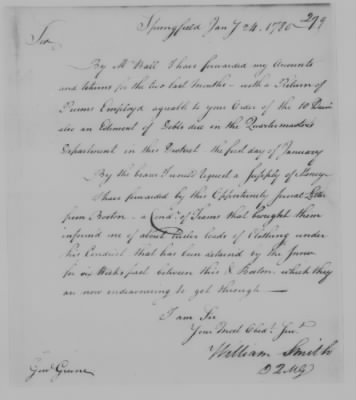 299
Springfield Jany 24. 1780
Sir
By Mr Wall I have forwarded my Accounts
and returns for the two last Months – with a Return of
Persons Employd agreable to your Order of the 10 Decmr
also an Estiment of Debts due in the Quartermasters
Department in this District the first day of January
By the bearer I must request a supply of Money
I have forwarded by this Oppertunity several Letters
from Boston – a Condr of Teams that brought them
informd me of about twelve loads of Clothing under
his Conduct that has been detained by the Snow
for six Weeks past between this & Boston. which they
are now endeavouring to get through –
I am Sir
Your Most Obedt Servt
William Smith
D Q M G
Genl Greene